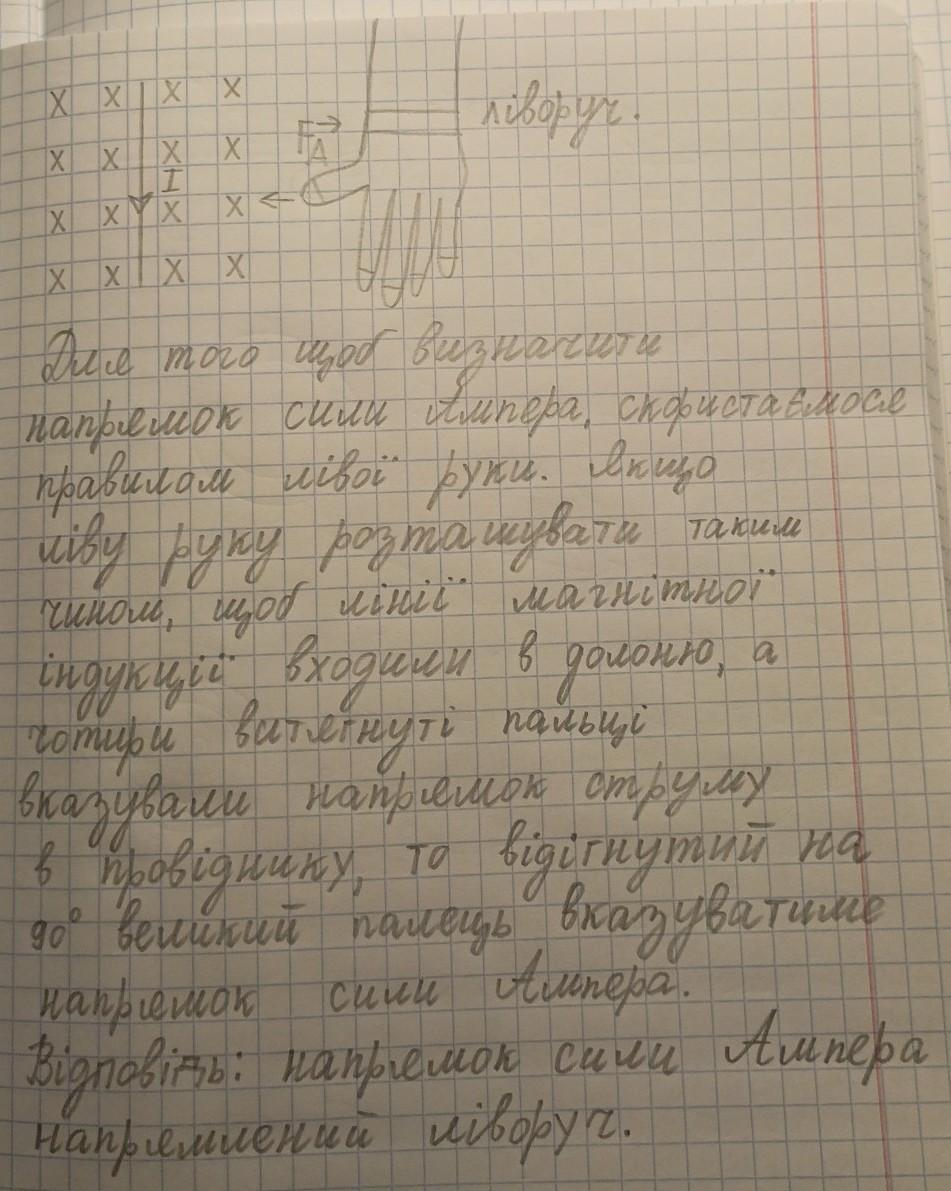 X X X X
F_A → ліворуч.
X X X X
I
X X X X
X X X X
Для того щоб визначити
напрямок сили Ампера, скористаємося
правилом лівої руки. Якщо
ліву руку розташувати таким
чином, щоб лінії магнітної
індукції входили в долоню, а
чотири витягнуті пальці
вказували напрямок струму
в провіднику, то відігнутий на
90° великий палець вказуватиме
напрямок сили Ампера.
Відповідь: напрямок сили Ампера
напрямлений ліворуч.